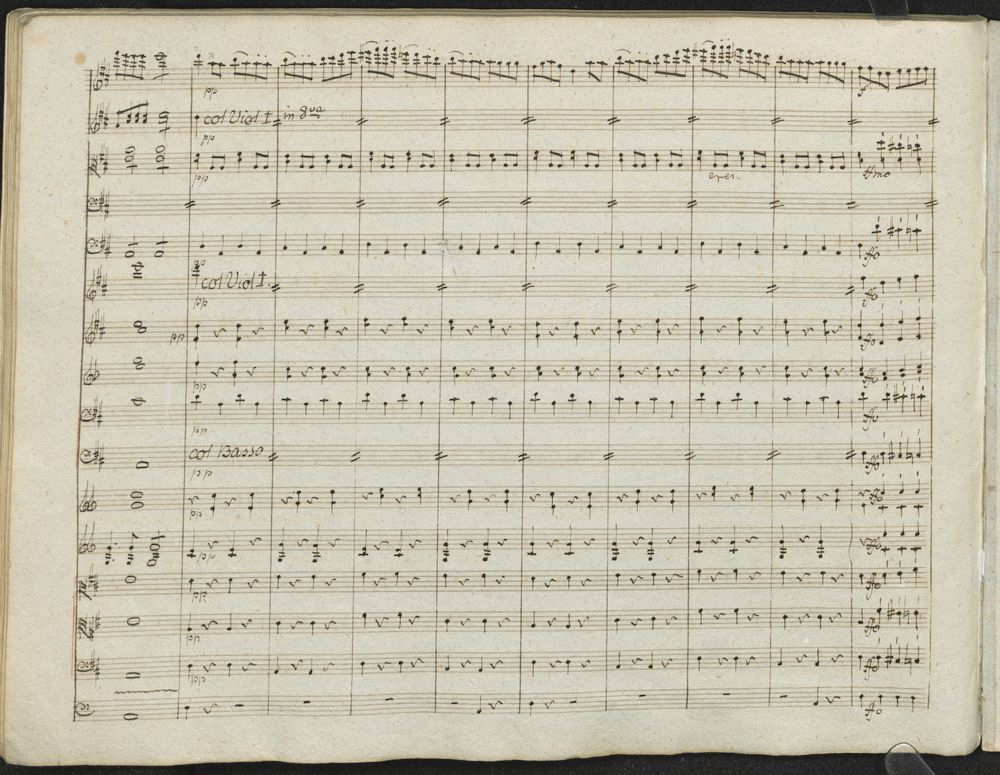 pp
col Viol I. in 8va
pp
pp
cres.
ffmo
pp
ffo
col Viol I.
pp
ffo
pp
ffo
pp
ffo
pp
ffo
col Basso
pp
ffo
pp
ffo
pp
ffo
pp
ffo
pp
ffo
pp
ffo
ffo